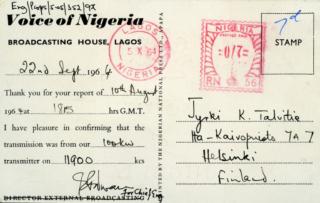 Eng/Props/505/252/9X
Voice of Nigeria
BROADCASTING HOUSE, LAGOS
22nd Sept 1964
Thank you for your report of 10th August
1964 at 1815 hrs G.M.T.
I have pleasure in confirming that the
transmission was from our 100kw
transmitter on 11900 kcs
for Chief Eng
DIRECTOR EXTERNAL BROADCASTING
PRINTED BY THE NIGERIAN NATIONAL PRESS LTD., APAPA
LAGOS
5 X 64
NIGERIA
NIGERIA
0/7
RN 56
7d
STAMP
Jyrki K. Talvitie
Ita-Kaivopuisto 7A 7
Helsinki
Finland.